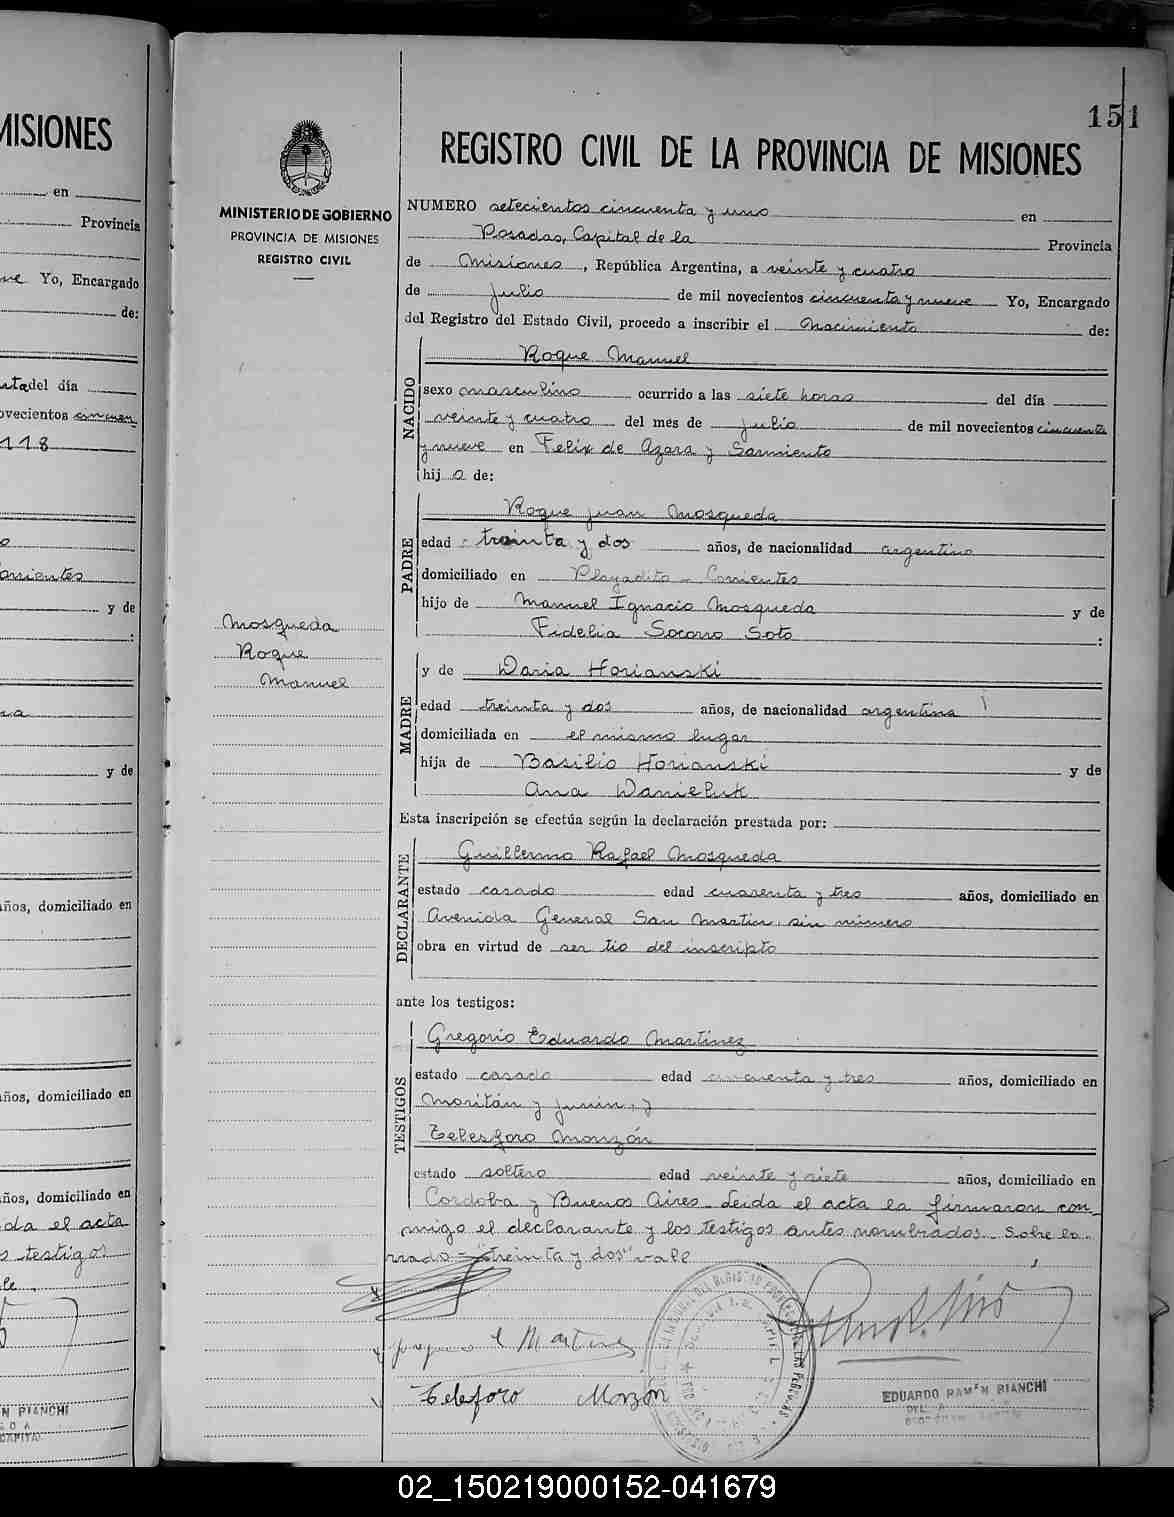 MISIONES
en
Provincia
Yo, Encargado
de:
del día
novecientos cincuen
118
Corrientes
y de
:
y de
años, domiciliado en
años, domiciliado en
años, domiciliado en
da el acta
testigos
N BIANCHI
151
MINISTERIO DE GOBIERNO
PROVINCIA DE MISIONES
REGISTRO CIVIL
Mosqueda
Roque
Manuel
REGISTRO CIVIL DE LA PROVINCIA DE MISIONES
NUMERO setecientos cincuenta y uno en
Posadas, Capital de la Provincia
de Misiones, República Argentina, a veinte y cuatro
de Julio de mil novecientos cincuenta y nueve Yo, Encargado
del Registro del Estado Civil, procedo a inscribir el Nacimiento de:
NACIDO
Roque Manuel
sexo masculino ocurrido a las siete horas del día
veinte y cuatro del mes de Julio de mil novecientos cincuenta
y nueve en Felix de Azara y Sarmiento
hijo de:
PADRE
Roque Juan Mosqueda
edad treinta y dos años, de nacionalidad argentino
domiciliado en Playadito - Corrientes
hijo de Manuel Ignacio Mosqueda y de
Fidelia Socorro Soto :
MADRE
y de Daria Horianski
edad treinta y dos años, de nacionalidad argentina
domiciliada en el mismo lugar
hija de Basilio Horianski y de
Ana Danieluk
Esta inscripción se efectúa según la declaración prestada por:
DECLARANTE
Guillermo Rafael Mosqueda
estado casado edad cuarenta y tres años, domiciliado en
Avenida General San Martin, sin número
obra en virtud de ser tio del inscripto
ante los testigos:
TESTIGOS
Gregorio Eduardo Martinez
estado casado edad cincuenta y tres años, domiciliado en
Moritán y Junin, y
Telesforo Monzón
estado soltero edad veinte y siete años, domiciliado en
Cordoba y Buenos Aires. Leida el acta la firmaron con-
migo el declarante y los testigos antes nombrados. Sobre bo-
rrado = "treinta y dos" vale
Teleforo Monzon
EDUARDO RAMÓN BIANCHI
02_150219000152-041679